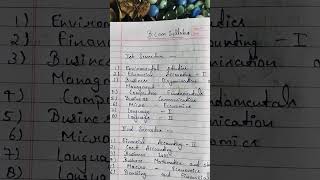 B.Com Syllabus
Ist Semester
1) Environmental studies
2) Financial Accounting - I
3) Business Organisation
Management
4) Computer Fundamentals
5) Business Communication
6) Micro Economics
7) Language - I
8) Language II
IInd Semester
1) Financial Accounting - II
2) Cost Accounting
3) Business Law
4) Business Mathematics and
5) Macro Economics
6) Banking and